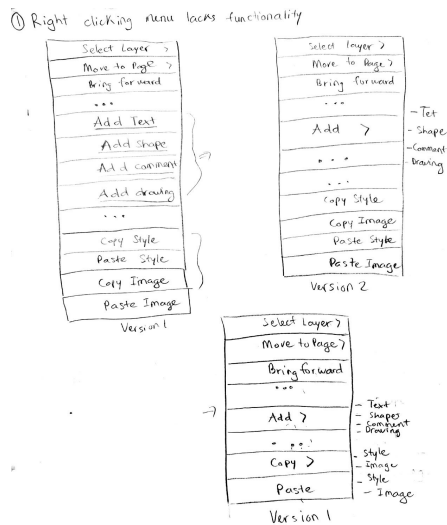 ① Right clicking menu lacks functionality
Select Layer >
Move to Page >
Bring forward
...
Add Text
Add shape
Add comment
Add drawing
...
Copy Style
Paste Style
Copy Image
Paste Image
Version 1
Select layer >
Move to Page >
Bring forward
...
Add >
- Tet
- Shape
- Comment
- Drawing
...
...
Copy Style
Copy Image
Paste Style
Paste Image
Version 2
Select Layer >
Move to Page >
Bring forward
...
Add >
- Text
- Shapes
- Comment
- Drawing
...
Copy >
- Style
- Image
Paste
- Style
- Image
Version 1